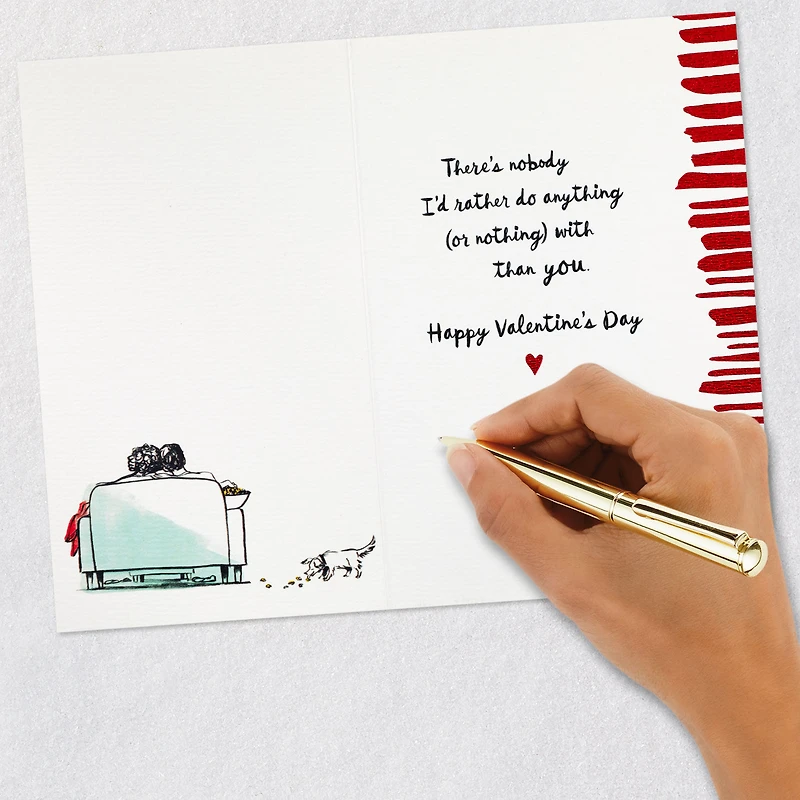 There's nobody
I'd rather do anything
(or nothing) with
than you.
Happy Valentine's Day